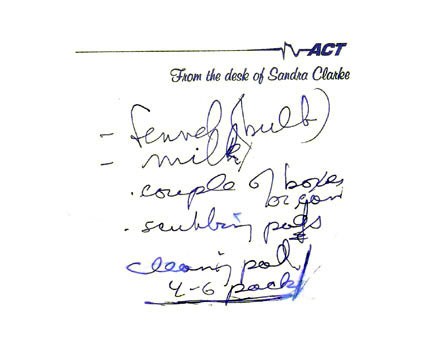 ACT
From the desk of Sandra Clarke
- fennel (bulb)
- milk
· couple of boxes
· scrubbing pads
cleaning pad
4-6 pack